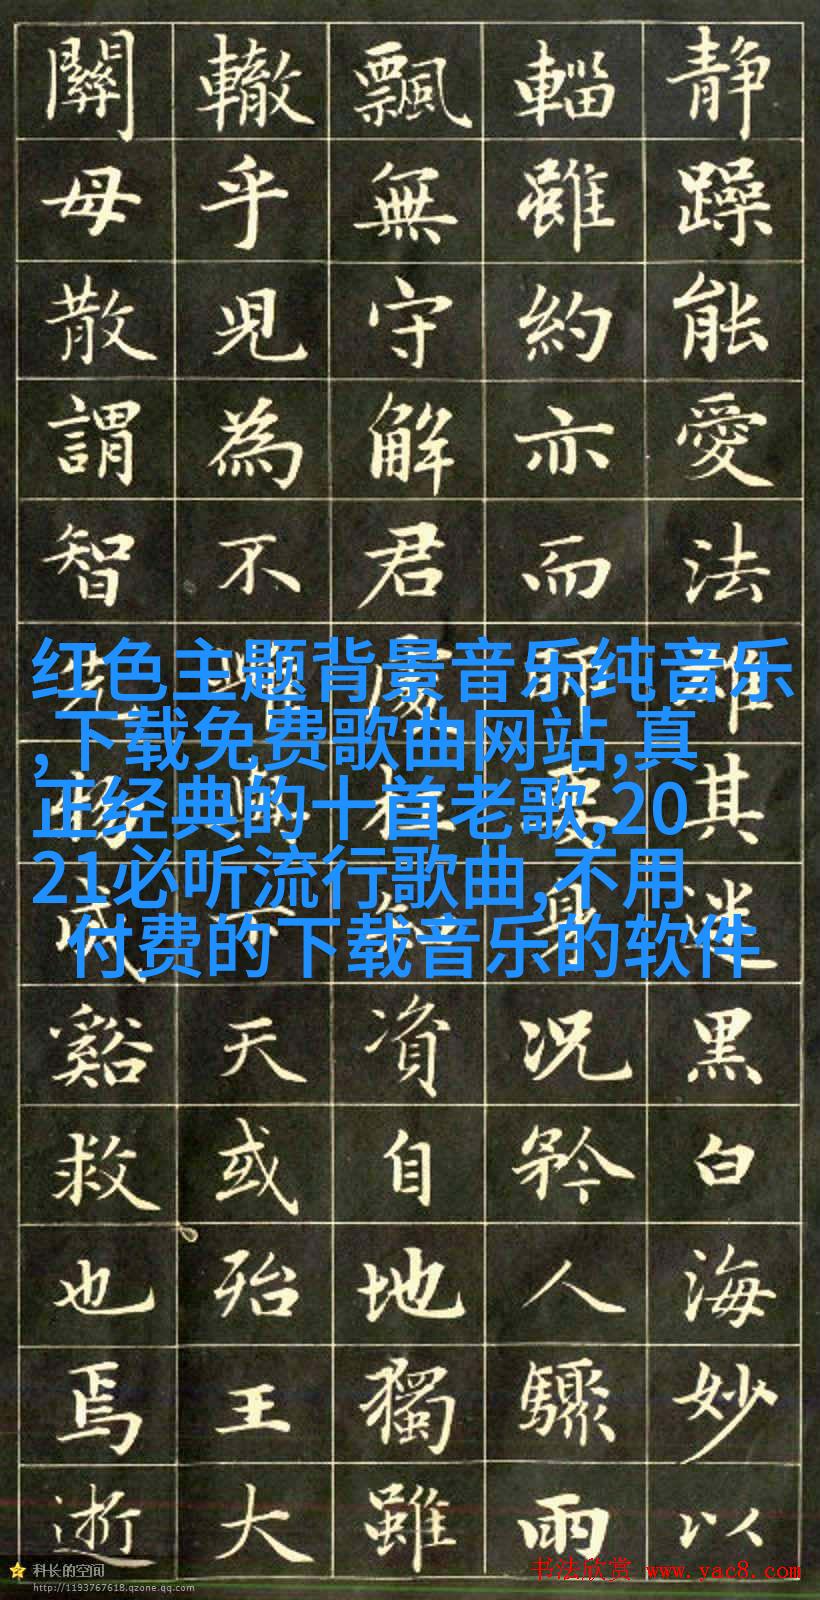 静躁能愛法其迷黑白海妙以
輜雖約亦而要身況矜人驟雨
飄無守解君處在知資自地獨雖
轍乎児為不天或殆王大
關毋散謂智物谿救也焉逝
红色主题背景音乐纯音乐
,下载免费歌曲网站,真
正经典的十首老歌,20
21必听流行歌曲,不用
付费的下载音乐的软件
科长的空间
http://1193767618.qzone.qq.com
书法欣赏 www.yac8.com